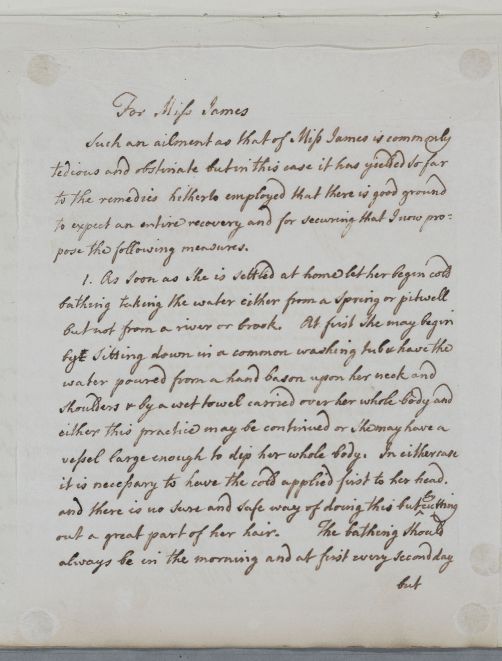 For Miss James
Such an ailment as that of Miss James is commonly
tedious and obstinate but in this case it has yeelded so far
to the remedies hitherto employed that there is good ground
to expect an entire recovery and for securing that I now pro=
pose the following measures.
1. As soon as she is settled at home let her begin cold
bathing taking the water either from a Spring or pitwell
but not from a river or brook. At first she may begin
by sitting down in a common washing tub & have the
water poured from a hand bason upon her neck and
shoulders & by a wet towel carried over her whole body and
either this practice may be continued or she may have a
vessel large enough to dip her whole body. In either case
it is necessary to have the cold applied first to her head.
and there is no sure and safe way of doing this but by cutting
out a great part of her hair. The bathing should
always be in the morning and at first every second day
but